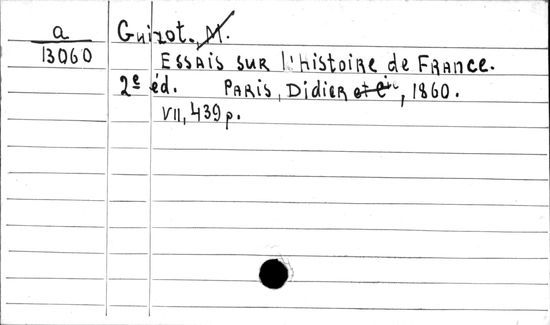 a
13060
Guizot, M.
Essais sur l'histoire de France.
2e éd. Paris, Didier et Cie, 1860.
VII, 439 p.